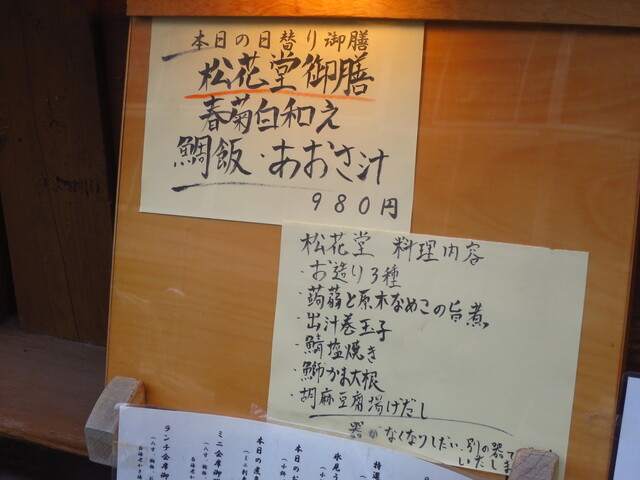 本日の日替り御膳
松花堂御膳
春菊白和え
鯛飯・あおさ汁
980円
松花堂 料理内容
・お造り3種
・蒟蒻と原木なめこの旨煮
・出汁巻玉子
・鯖塩焼き
・鰤かま大根
・胡麻豆腐揚げだし
器がなくなりしだい、別の器
ランチ会席御
ミニ会席御
本日の
本日のお